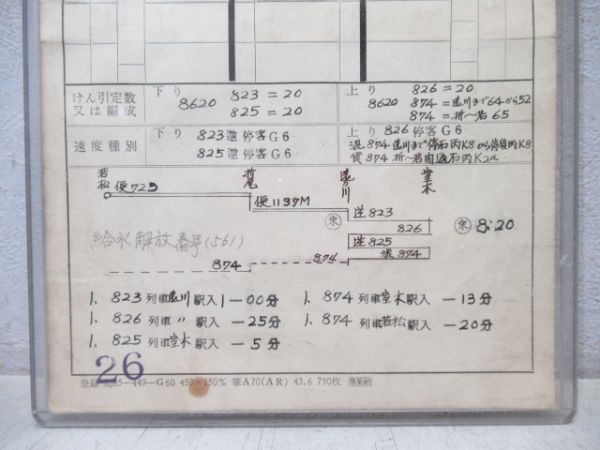 けん引定数
又は編成
下り
8620 823 = 20
825 = 20
上り
826 = 20
8620 874 = 遠川まで64から52
874 = 折〜若 65
速度種別
下り
823遠 停客G6
825遠 停客G6
上り 826 停客G6
混 874 遠川まで停石丙K8から停貨丙K8
貨 874 折〜若
若松
折尾
遠賀川
室木
便723
便1137M
東
遠823
826
東
8:20
給水 解放 番号(561)
遠825
874
874
混874
1. 823列車遠川駅入 1―00分
1. 874列車室木駅入 ―13分
1. 826列車 〃 駅入 ―25分
1. 874列車若松駅入 ―20分
1. 825列車室木駅入 ―5分
26
―449―G60 450×150% 暖A70(AR) 43.6 750枚